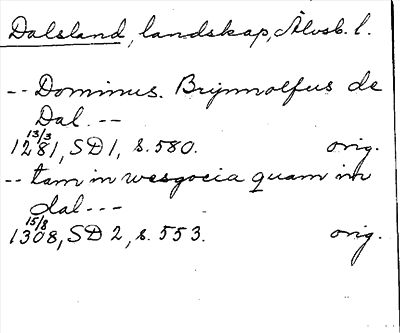 Dalsland, landskap, Älvsb. l.
-- Dominus. Brynnolfus de
Dal. --
13/3
1281, SD1, s. 580. orig.
-- tam in wesgocia quam in
dal ---
15/8
1308, SD 2, s. 553. orig.